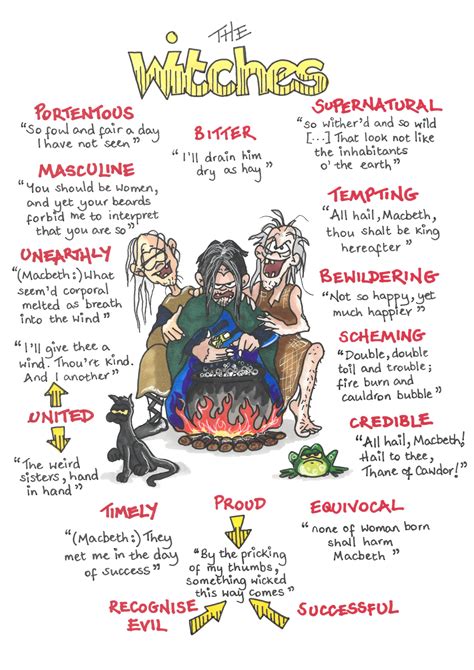 THE
Witches
PORTENTOUS
"So foul and fair a day
I have not seen"
BITTER
"I'll drain him
dry as hay"
SUPERNATURAL
"so wither'd and so wild
[...] That look not like
the inhabitants
o' the earth"
MASCULINE
"You should be women,
and yet your beards
forbid me to interpret
that you are so"
TEMPTING
"All hail, Macbeth,
thou shalt be king
hereafter"
UNEARTHLY
"(Macbeth:) What
seem'd corporal
melted as breath
into the wind"
BEWILDERING
"Not so happy, yet
much happier"
SCHEMING
"Double, double
toil and trouble;
fire burn and
cauldron bubble"
"I'll give thee a
wind. Thou'rt kind.
And I another"
UNITED
"The weird
sisters, hand
in hand"
CREDIBLE
"All hail, Macbeth!
Hail to thee,
Thane of Cawdor!"
TIMELY
"(Macbeth:) They
met me in the day
of success"
PROUD
"By the pricking
of my thumbs,
something wicked
this way comes"
EQUIVOCAL
"none of woman born
shall harm
Macbeth"
RECOGNISE
EVIL
SUCCESSFUL